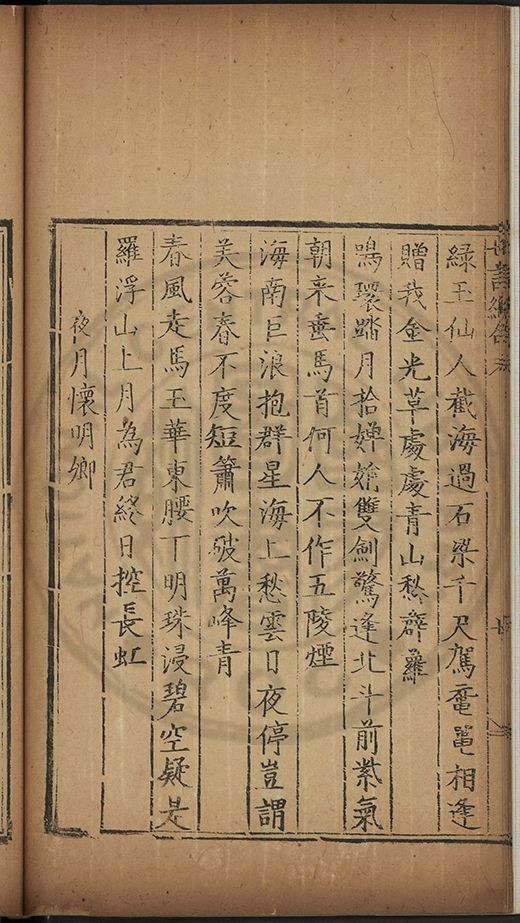 綠玉仙人截海過石梁千尺駕黿鼉相逢
贈我金光草處處青山愁薜蘿
鳴環踏月拾嬋娟雙劍驚逢北斗前紫氣
朝來垂馬首何人不作五陵煙
海南巨浪抱群星海上愁雲日夜停豈謂
芙蓉春不度短簫吹破萬峰青
春風走馬玉華東腰下明珠浸碧空疑是
羅浮山上月為君終日控長虹
夜月懷明卿